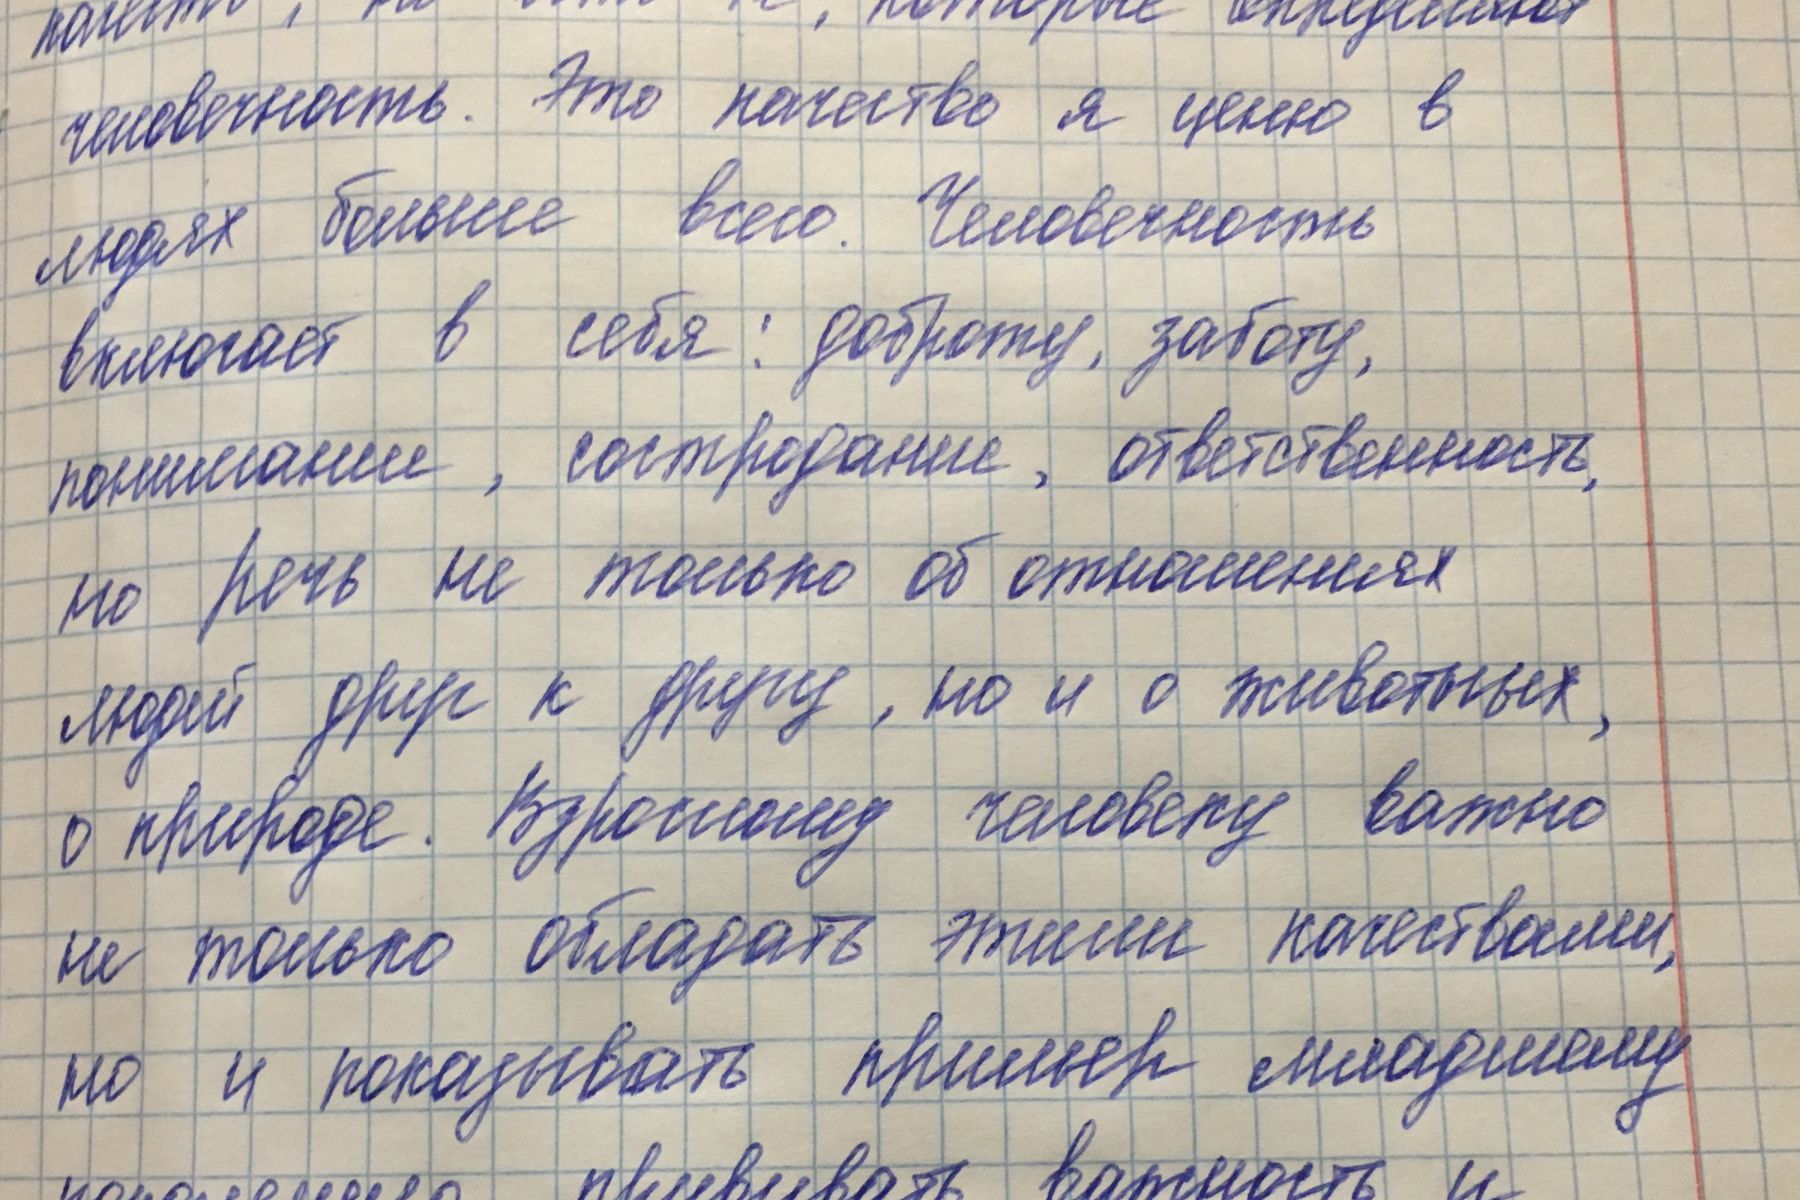 которые определяют
человечность. Это качество я ценю в
людях больше всего. Человечность
включает в себя: доброту, заботу,
понимании, состродание, ответственность,
но речь не только об отношениях
людей друг к другу, но и о животных,
о природе. Взрослому человеку важно
не только обладать этими качествами,
но и показывать пример младшему
прививать важность и